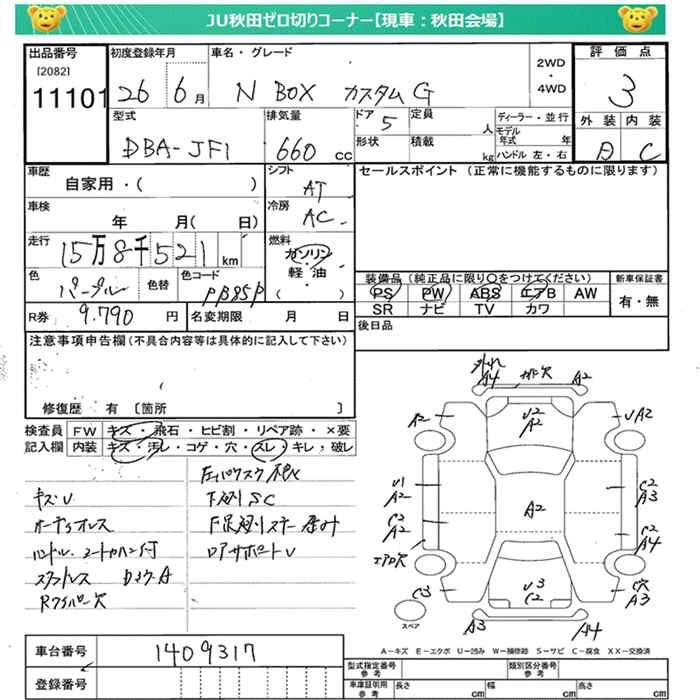 JU秋田ゼロ切りコーナー【現車：秋田会場】
出品番号 初度登録年月 車名・グレード 2WD・4WD 評価点
[2082]
11101 26 6月 N BOX カスタムG 3
型式 排気量 ドア 5 定員 人 ディーラー・並行 外装 内装
モデル年式 年
DBA-JF1 660cc 形状 積載 kg ハンドル 左・右 A C
車歴 シフト セールスポイント (正常に機能するものに限ります)
自家用・( ) AT
車検 冷房
年 月( 日) AC
走行 燃料
15万8千521km ガソリン・軽油
( )
色 色替 色コード 装備品 (純正品に限り〇をつけてください) 新車保証書
パープル PB85P PS PW ABS エアB AW 有・無
SR ナビ TV カワ
R券 9.790円 名変期限 月 日 後日品
注意事項申告欄(不具合内容等は具体的に記入して下さい)
修復歴 有 [箇所 ]
検査員記入欄 FW キズ・飛石・ヒビ割・リペア跡・×要
内装 キズ・汚レ・コゲ・穴・スレ・キレ・破レ
キズU
オーディオレス
下廻りSC
ロアサポートU
Rワイパー欠
A4 排欠 A2
A2 U2 A2 UA2
U1 A2 C2 A3
A2
C2 A2 C2 A4
エアロ欠
C3 U3 C2 C穴 A3
スペア A3 A4
A－キズ E－エクボ U－凹み W－補修跡 S－サビ C－腐食 XX－交換済
車台番号 1409317
登録番号
型式指定番号 参考 類別区分番号 参考
車庫証明用 参考 長さ cm 幅 cm 高さ cm